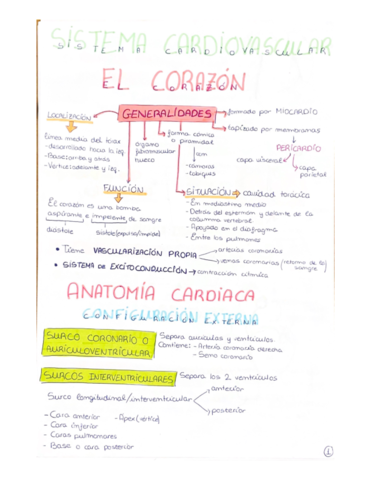 SISTEMA CARDIOVASCULAR
EL CORAZÓN
GENERALIDADES
formado por MIOCARDIO
tapizado por membranas
PERICARDIO
capa visceral
capa parietal
LOCALIZACIÓN
línea media del tórax
- desarrollado hacia la izq.
- Base: arriba y atrás
- Vértice: adelante y izq.
órgano fibromuscular hueco
forma cónica o piramidal
con
- cámaras
- tabiques
FUNCIÓN
El corazón es una bomba
aspirante e impelente de sangre
diástole
SITUACIÓN → cavidad torácica
- En mediastino medio
- Detrás del esternón y delante de la
columna vertebral
- Apoyado en el diafragma
- Entre los pulmones
• Tiene VASCULARIZACIÓN PROPIA
arterias coronarias
venas coronarias (retorno de la sangre
• SISTEMA DE EXCITOCONDUCCIÓN → contracción rítmica
ANATOMÍA CARDIACA
CONFIGURACIÓN EXTERNA
SURCO CORONARIO O
AURICULOVENTRICULAR
Separa aurículas y ventrículos
Contiene: - Arteria coronaria derecha
- Seno coronario
SURCOS INTERVENTRICULARES
Separa los 2 ventrículos
Surco longitudinal/interventricular
anterior
posterior
- Cara anterior
- Ápex (vértice)
- Cara inferior
- Caras pulmonares
- Base o cara posterior
1